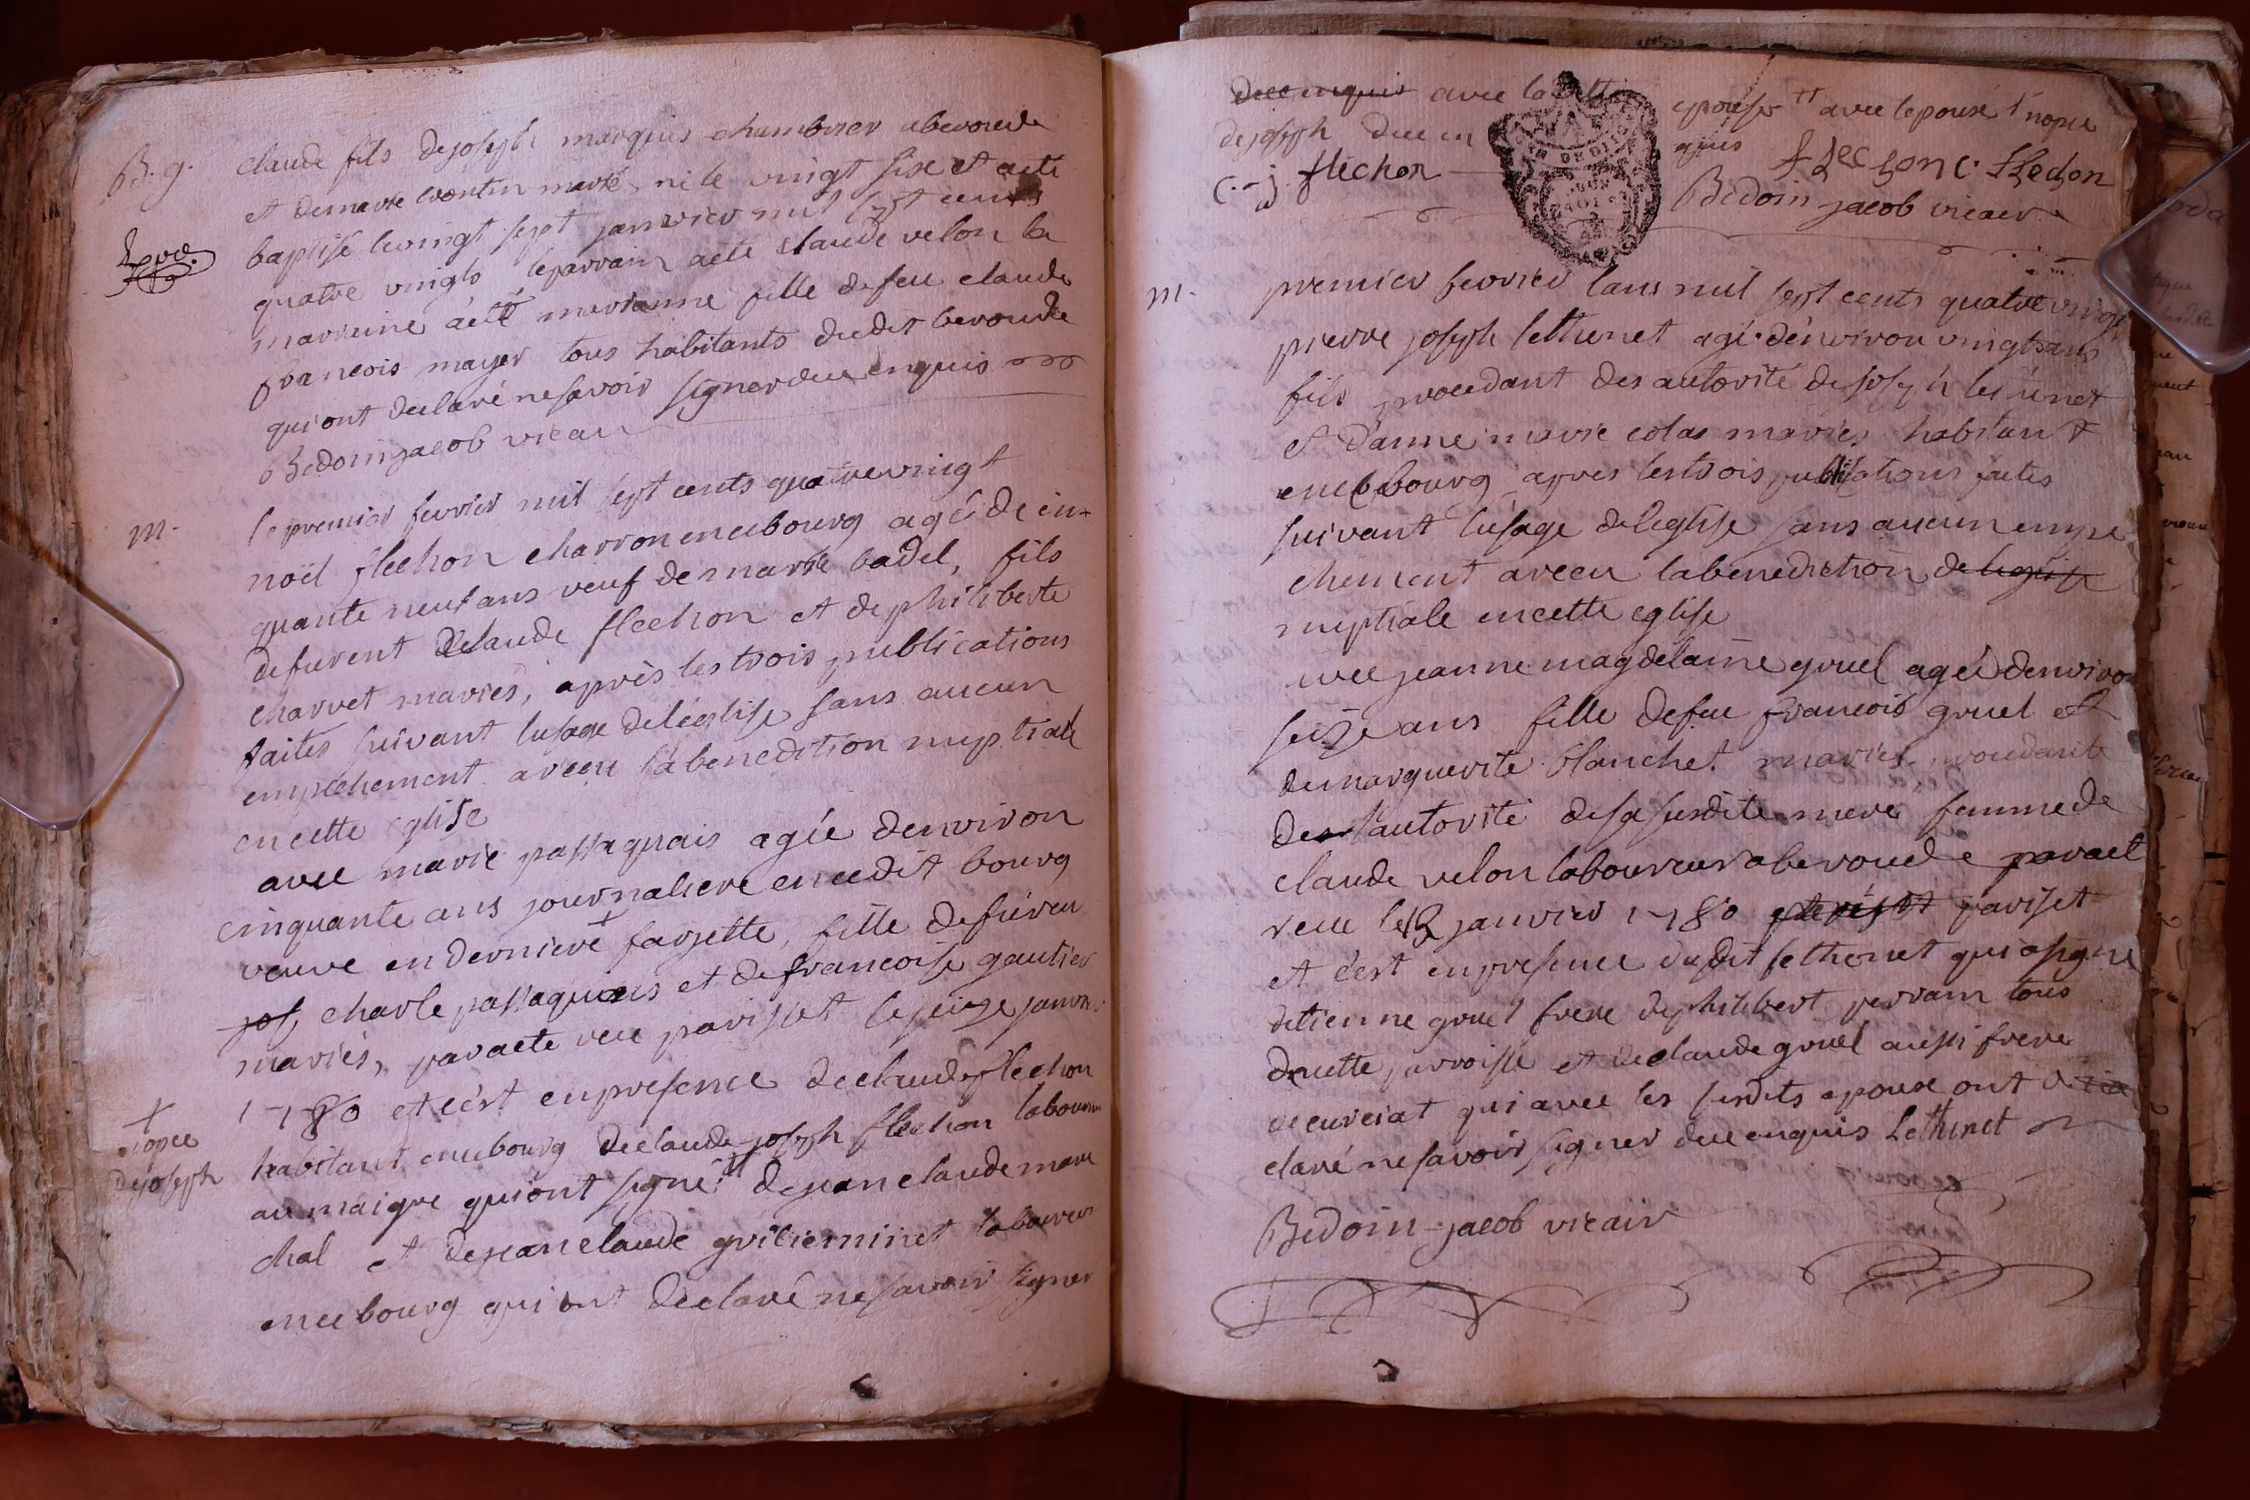 B. g.
claude fils de joseph marquis chambrier a bevoude
et de marie wontin mariés, né le vingt six et a été
baptisé le vingt sept janvier mil sept cents
quatre vingts le parrain a été claude velon la
marreine a été marianne fille de feu claude
francois mayer tous habitants dudit bevoude
qui ont declaré ne savoir signer duc enquis
Bedoin jacob vicair
m.
le premier fevrier mil sept cents quatrevingt
noël flechon charron en ce bourg agé de cin-
quante neuf ans veuf de marie badel, fils
defurent claude flechon et de philiberte
charvet mariés, après les trois publications
faites suivant l'usage de l'église sans aucun
empechement a reçu la benediction nuptiale
en cette eglise
avec marie passaquais agée denviron
cinquante ans journaliere en cedit bourg
veuve en derniere + farjette, fille de fü
jos, charle passaquais et de francoise gautier
mariés, par acte reçu parisset le seize janv.
1780 et c'est en presence de claude flechon
habitant en ce bourg de claude joseph flechon laboureur
au maigre qui ont signé de jean claude mare
chal et de jean claude guilleminet laboureur
en ce bourg qui ont déclaré ne savoir signer
+
nopce
de joseph
duc enquis avec la ditte epouse ++ avec lepouse 1 nopce
de joseph duc en quis
c. - j. flechon
flechon c. flechon
Bedoin jacob vicair
m.
premier fevrier lans mil sept cents quatre vingt
pierre joseph lethenet agé denviron vingts ans
fils procedant des autorité de joseph lethenet
et d'anne marie colas mariés habitant
en ce bourg apres les trois publications faites
suivant l'usage de l'eglise sans aucun empe
chement a receu la benediction de l'eglise
nuptiale en cette eglise
avec jeanne magdelaine gruel agée denviron
seize ans fille de feu francois gruel et
de marguerite blanchet mariés procedante
de l'autorité de sa susdite mere femme de
claude velon laboureur a bevoude par acte
receu le 12 janvier 1780 parisset
et c'est en presence dudit lethenet qui a signé
detienne gruel frere de philibert perram tous
de cette parroisse et de claude gruel aussi frere
de curciat qui avec les susdits epoux ont dé
claré ne savoir signer duc enquis Lethenet
Bedoin jacob vicair